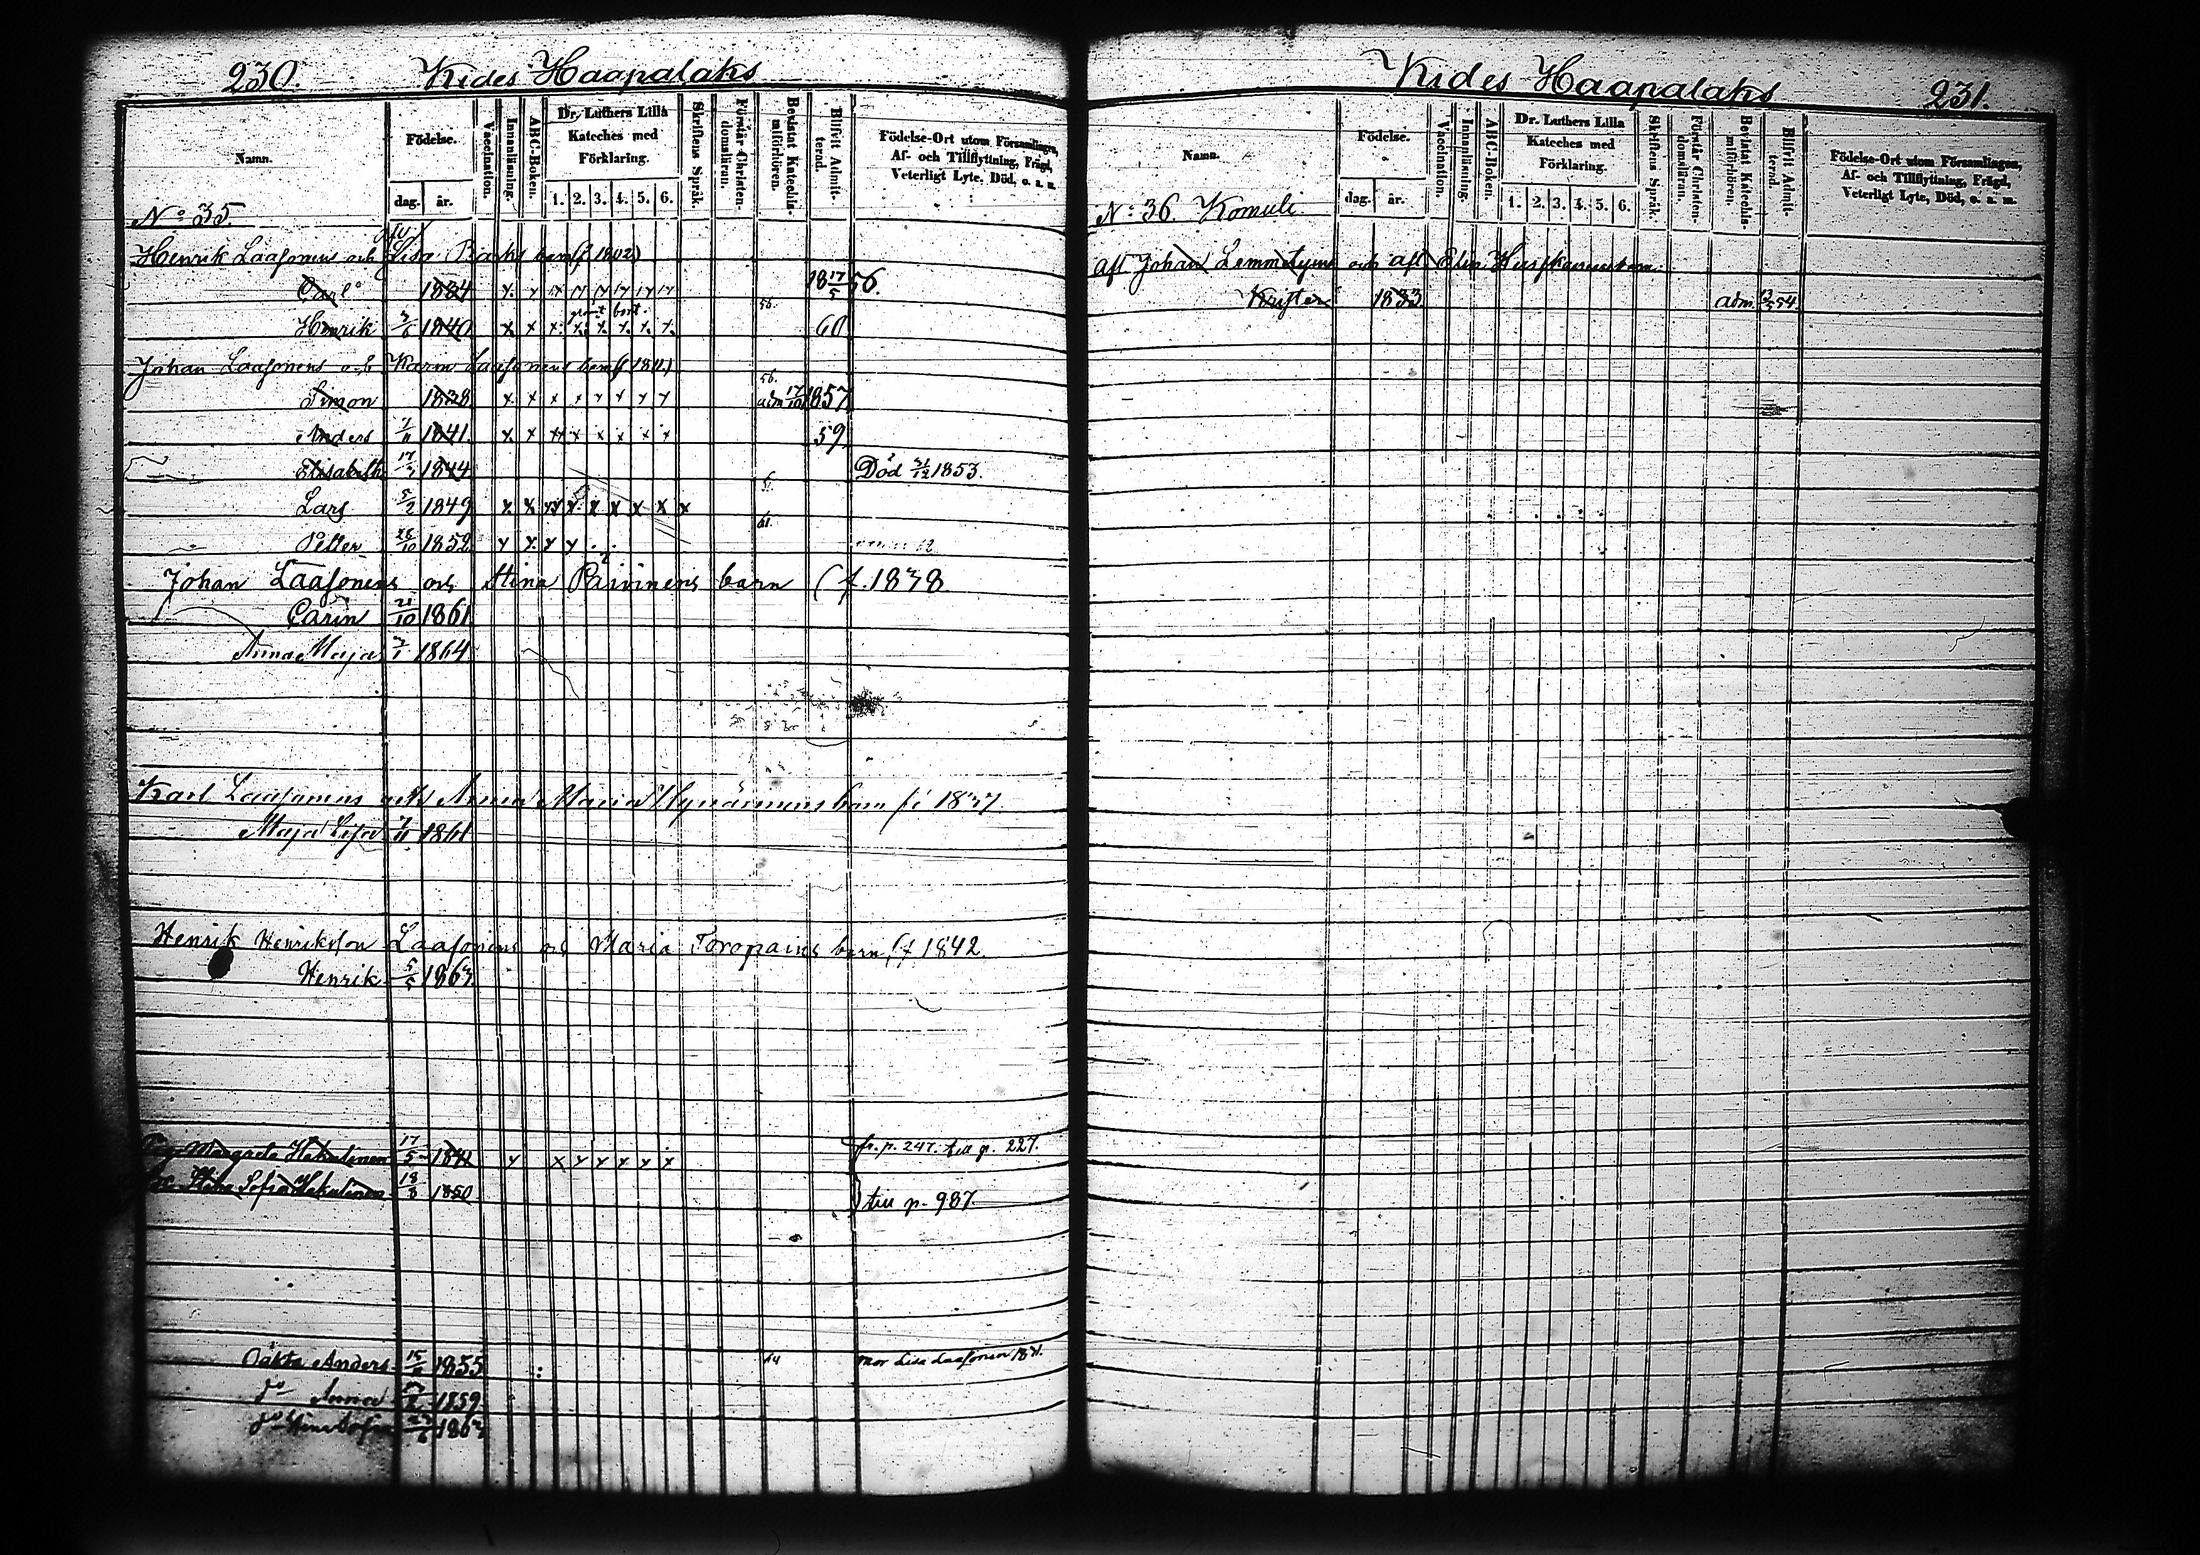 230. Kides Haapalaks
Namn. Födelse. dag. år. Vaccination. Innanläsning. ABC-Boken. Dr. Luthers Lilla Kateches med Förklaring. 1. 2. 3. 4. 5. 6. Skriftens Språk. Förstår Christendomsläran. Bevistat Katechismiförhören. Blifvit Admitterad. Födelse-Ort utom Församlingen, Af- och Tillflyttning, Frägd, Veterligt Lyte, Död, o. s. m.
No 35.
Henrik Laasonens och Lisa barn (f 1802)
Carl 1834 x 18 17/5 56.
Henrik 1840 x x x x x x x x 60
Johan Laasonens och Karin Laasonens barn
Simon 1838 x x x x x x x x 56. adm 17/10 1857
Anders 1841. x x x x x x x x 59
Elisabeth 1844 Död 21/12 1853.
Lars 5/2 1849 x x x x x x x x x
Petter 26/10 1852 x x x x 61.
Johan Laasonens och Stina Päivinens barn (f. 1838
Carin 21/10 1861
Anna Maja 1864
Karl Laasonens och Anna Maria barn 1837
Maja Lisa 1861
Henrik Henriksson Laasonens och Maria Toropains barn (f 1842.
Henrik 5/5 1863
Margreta Hakulinen 17/5 1842 x x x x x x x fr. p. 247. till p. 227.
Sofia Hakulinen 18/3 1850 till p. 987.
Oäkta Anders 15/ 1855 64 mor Lisa Laasonen
do Anna 1859
do Stina Sofia 1863
Kides Haapalaks 231.
Namn. Födelse. dag. år. Vaccination. Innanläsning. ABC-Boken. Dr. Luthers Lilla Kateches med Förklaring. 1. 2. 3. 4. 5. 6. Skriftens Språk. Förstår Christendomsläran. Bevistat Katechismiförhören. Blifvit Admitterad. Födelse-Ort utom Församlingen, Af- och Tillflyttning, Frägd, Veterligt Lyte, Död, o. s. m.
No 36. Komuli
Afl Johan Lemmetyins och afl Elin
Krister 1833 adm. 54.